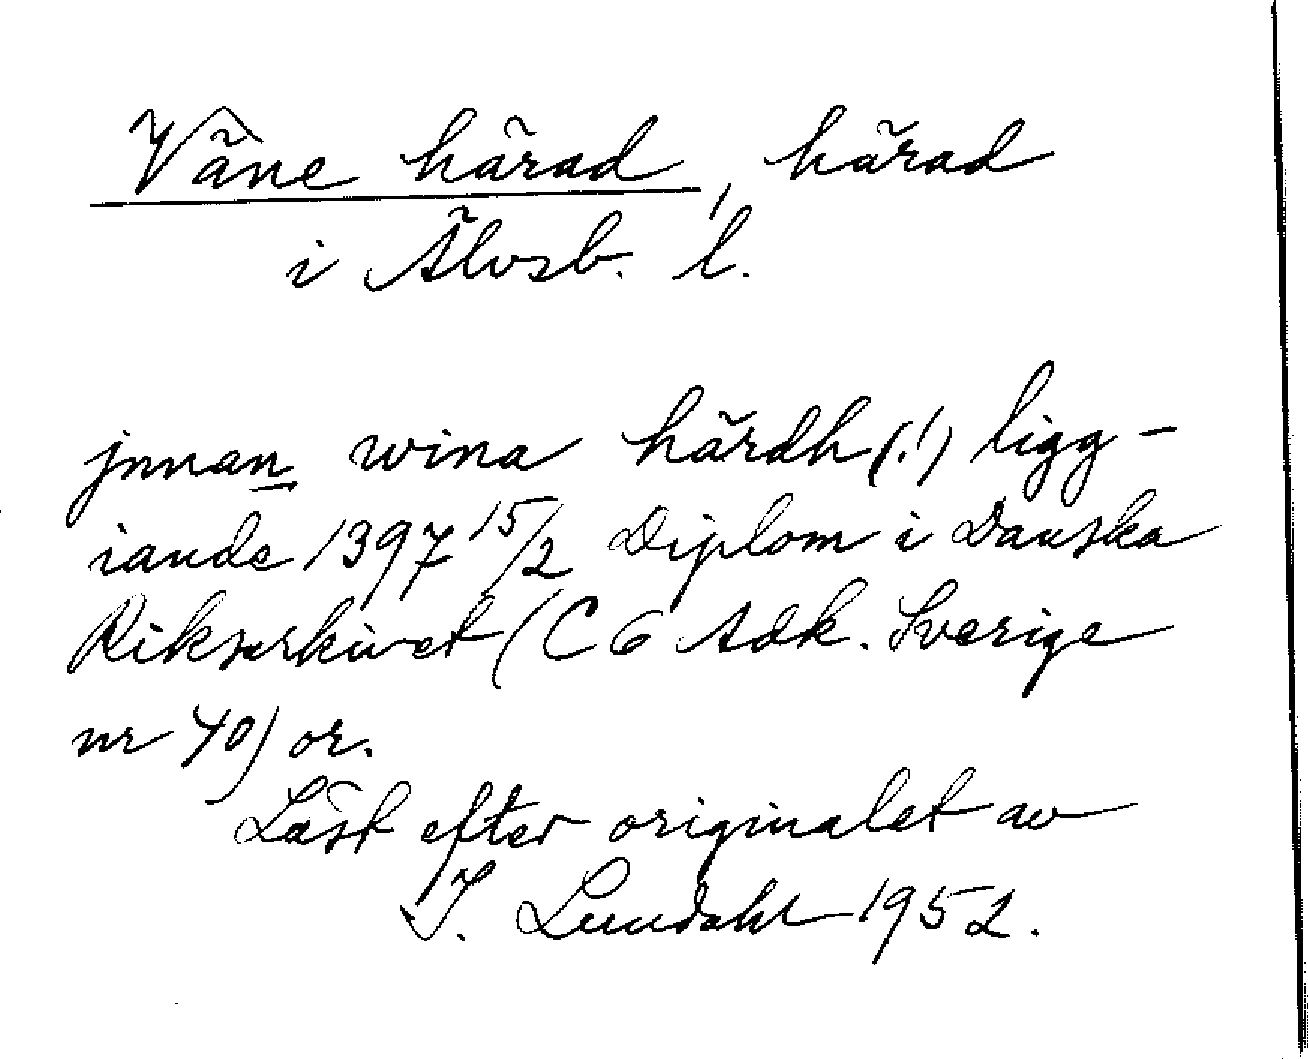 Väne härad, härad
i Älvsb. l.
jnnan wina härdh (!) ligg-
iande 1397 15/2 Diplom i Danska
Riksarkivet (C 6 Adk. Sverige
nr 40) or.
Läst efter originalet av
I. Lundahl 1952.